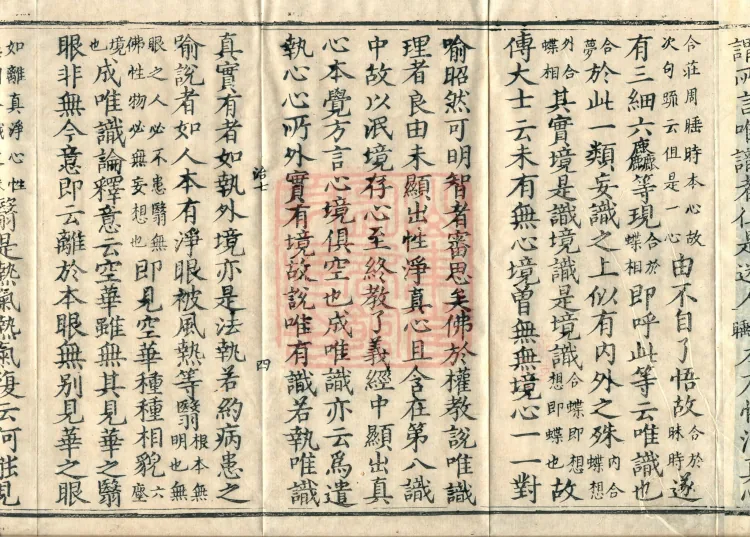 合莊周睡時本心故
次句䟽云但是一心由不自了悟故合於昧時遂
有三細六麤等現合於蝶相即呼此等云唯識也
合夢於此一類妄識之上似有内外之殊内合蝶想
外合蝶相其實境是識境識是境識合蝶即想想即蝶也故
傳大士云未有無心境曾無無境心一一對
喻昭然可明智者審思矣佛於權教說唯識
理者良由未顯出性淨真心且含在第八識
中故以泯境存心至終教了義經中顯出真
心本覺方言心境俱空也成唯識亦云爲遣
執心心所外實有境故說唯有識若執唯識
治七
四
真實有者如執外境亦是法執若約病患之
喻說者如人本有淨眼被風熱等翳根本無明也無
眼之人必不患翳無佛性物必無妄想也即見空華種種相貌六塵
境也成唯識論釋意云空華雖無其見華之翳
眼非無今意即云離於本眼無別見華之眼
如離真淨心性
翳是熱氣熱氣復云何能見